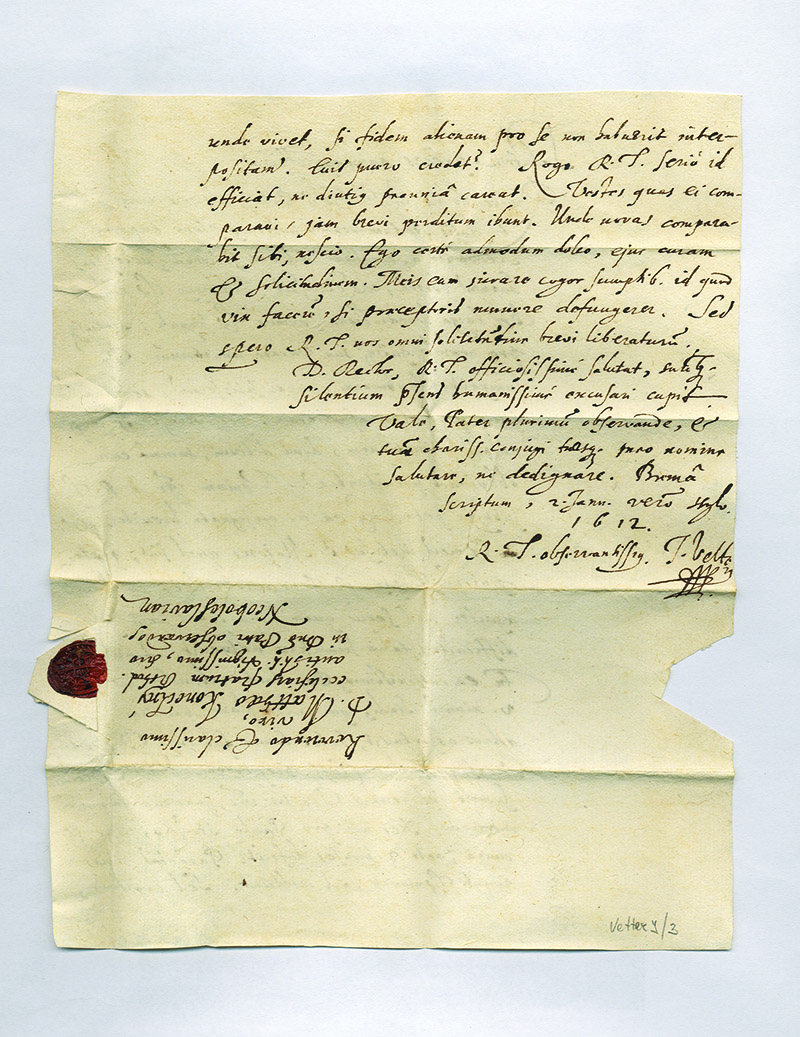 unde vivet, si fidem alienam pro se non habuerit inter-
positam. Cui puero credet? Rogo R. T. serio id
efficiat, ne diutiq pecuniā careat. Vestes quas ei com-
paravi, jam brevi perditum ibunt. Unde novas compara-
bit sibi, nescio. Ego certè admodum doleo, ejus curam
& solicitudinem. Meis eum juvare cogor sumptib. id quod
vix facerē, si praeceptoris munere defungerer. Sed
spero R. T. nos omni solicitudine brevi liberaturū.
D. Rector, R. T. officiosissimè salutat, suūq.
silentium humanissimè excusari cupit
Vale, Pater plurimū observande, &
tuā chariss. conjugē meo nomine
salutare, ne dedignare. Bremā
scriptum, 2. Jann. vero stylo.
1612.
R. T. observantissiq. J. Vetter
Reverendo & clarissimo
viro,
D. Matthæo Konečný
ecclesiaȝ fratrum Orthod.
antistiti dignissimo, suo
in Dnō Patri observandoȝ
Neoboleslaviam
Vetter J/3